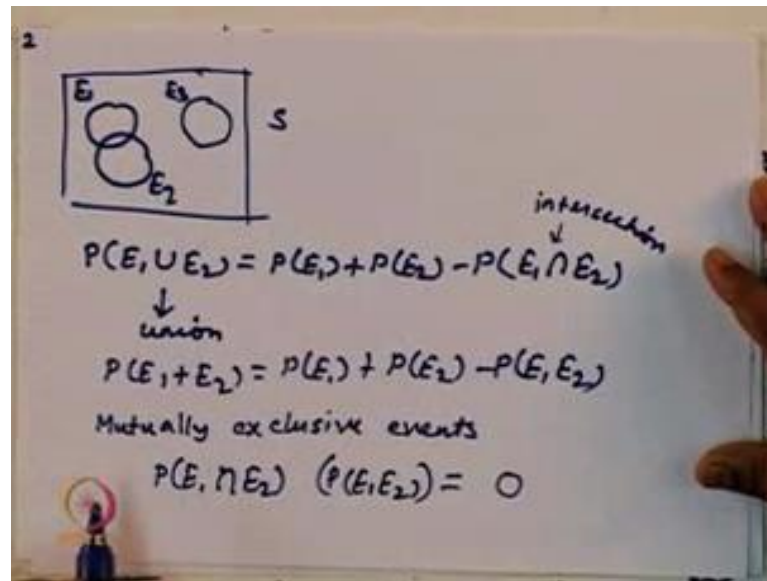 2
E₁ E₃
S
E₂
intersection
↓
P(E₁ ∪ E₂) = P(E₁) + P(E₂) - P(E₁ ∩ E₂)
↓
union
P(E₁ + E₂) = P(E₁) + P(E₂) - P(E₁ E₂)
Mutually exclusive events
P(E₁ ∩ E₂) (P(E₁E₂)) = 0